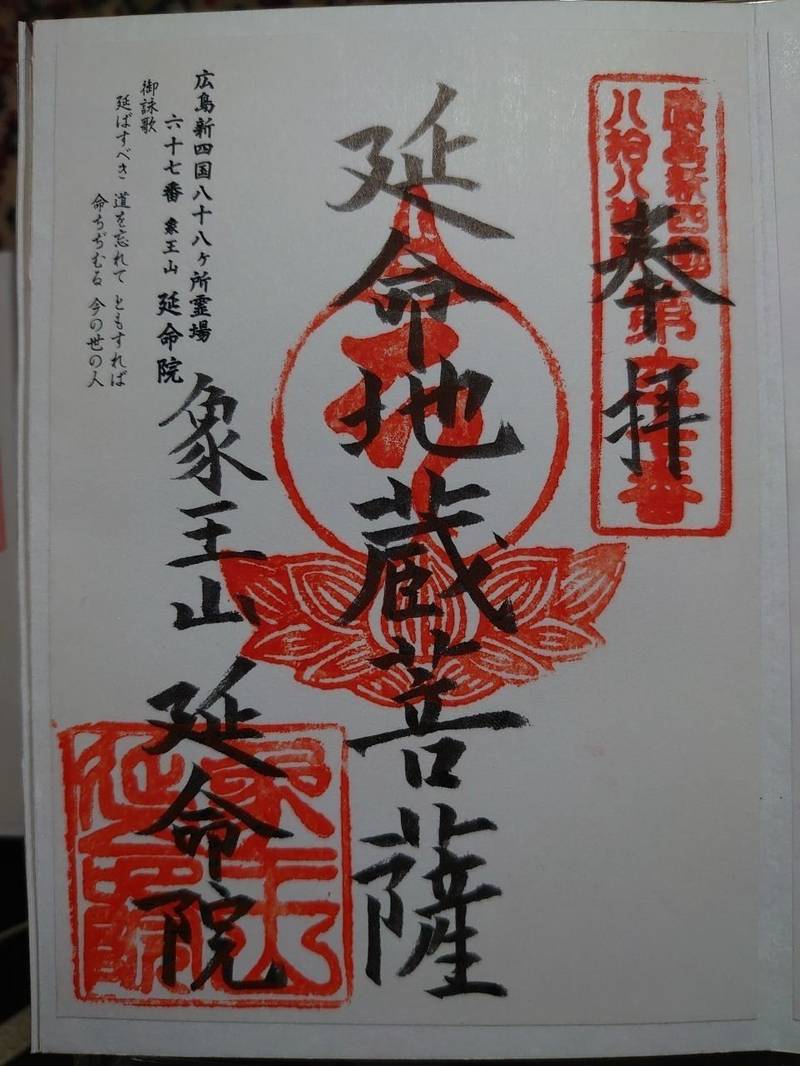 廣島新四國
八拾八
第六十七番
奉拝
延命地蔵菩薩
象王山 延命院
広島新四国八十八ヶ所霊場
六十七番 象王山 延命院
御詠歌
延ばすべき 道を忘れて ともすれば
命ちぢむる 今の世の人